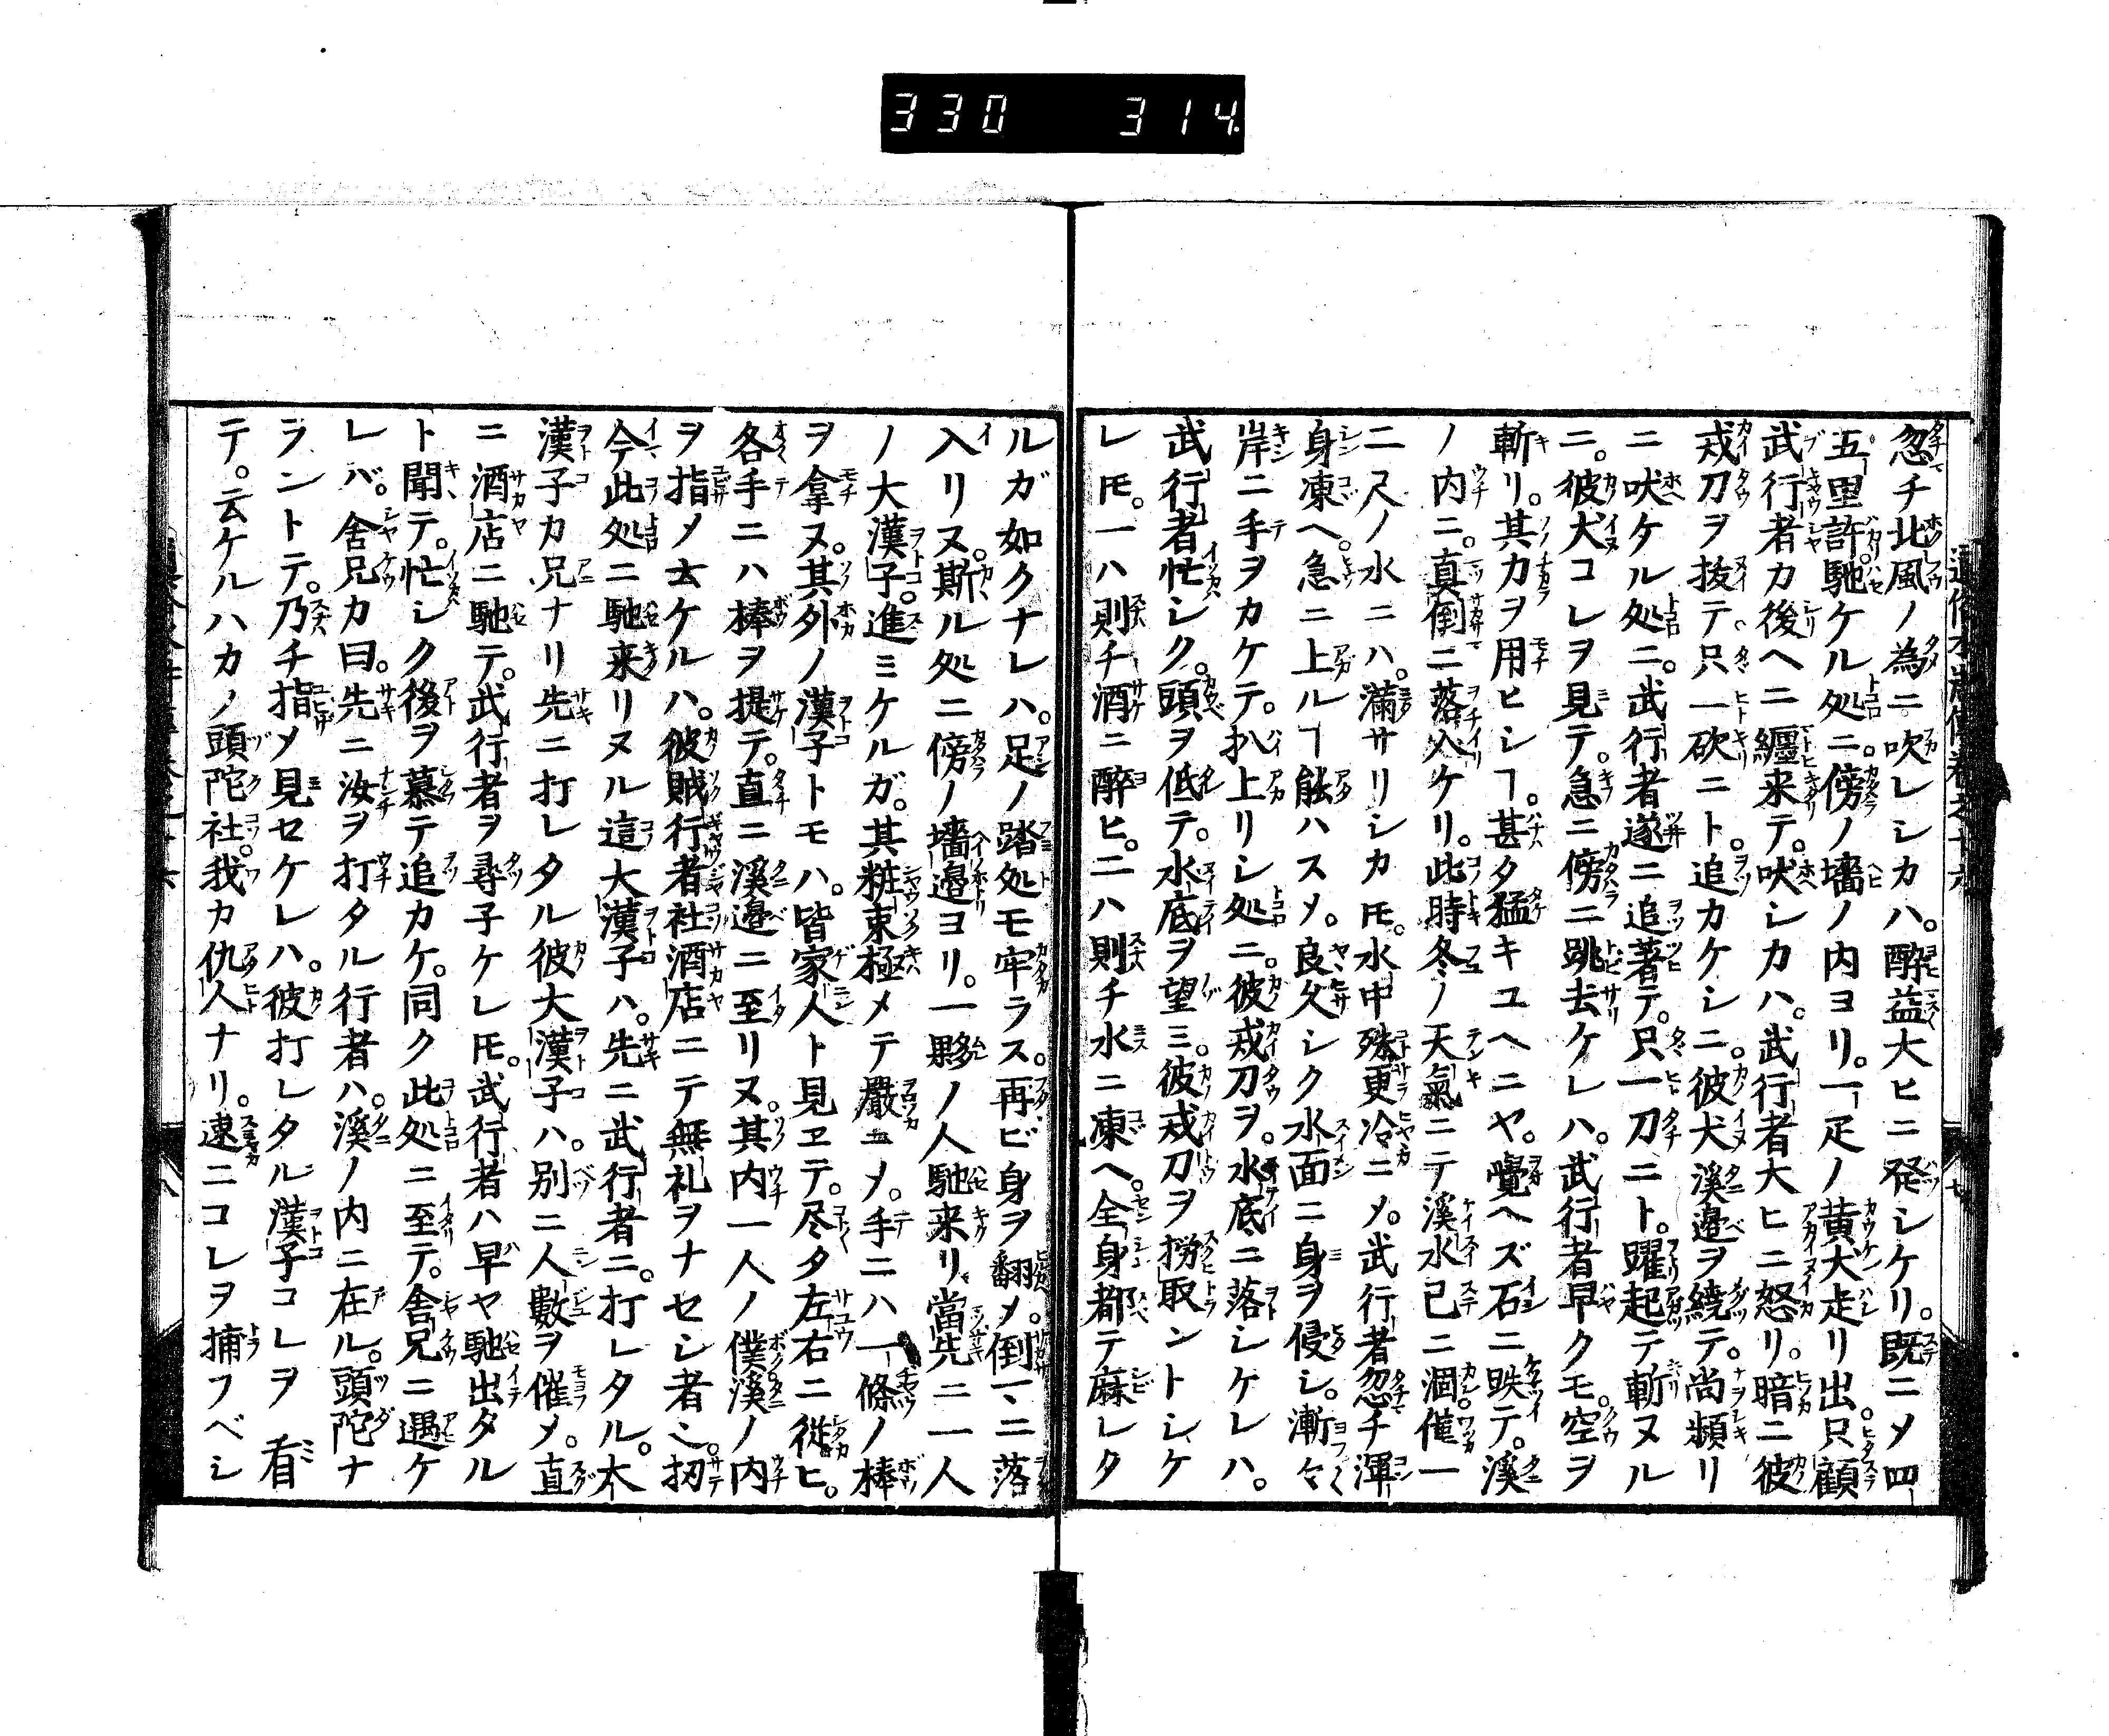 330 314
忽チ北風ノ為ニ吹レシカハ。醉益大ヒニ発シケリ。既ニメ四
五里許馳ケル処ニ。傍ノ墻ノ内ヨリ。一疋ノ黄犬走リ出。只顧
武行者カ後ヘニ纏来テ。吠シカハ。武行者大ヒニ怒リ。暗ニ彼
戒刀ヲ抜テ。只一砍ニト。追カケシニ。彼犬溪邉ヲ繞テ。尚頻リ
ニ吠ケル処ニ。武行者遂ニ追著テ。只一刀ニト。躍起テ斬ヌル
ニ。彼犬コレヲ見テ。急ニ傍ニ跳去ケレハ。武行者早クモ。空ヲ
斬リ。其カヲ用ヒシヿ。甚タ猛キユヘニヤ。覺ヘズ石ニ跌テ。溪
ノ内ニ。真倒ニ落入ケリ。此時冬ノ天氣ニテ溪水已ニ涸僅一
二尺ノ水ニハ。滿サリシカ𪜈。水中殊更冷ニメ。武行者忽チ渾
身凍ヘ。急ニ上ルヿ能ハスメ。良久シク水面ニ身ヲ侵シ。漸々
岸ニ手ヲカケテ。扒上リシ処ニ。彼戒刀ヲ。水底ニ落シケレハ。
武行者忙シク。頭ヲ低テ。水底ヲ望ミ。彼戒刀ヲ撈取ントシケ
レ𪜈。一ハ則チ酒ニ醉ヒ。二ハ則チ水ニ凍ヘ。全身都テ麻レタ
ルガ如クナレハ。足ノ踏処モ牢ラス。再ビ身ヲ翻メ。倒ニ落
入リヌ。斯ル処ニ傍ノ墻邉ヨリ。一夥ノ人馳来リ。當先ニ一人
ノ大漢子。進ミケルガ。其粧束極メテ嚴ニメ。手ニハ一條ノ棒
ヲ拿ヌ。其外ノ漢子トモハ。皆家人ト見ヱテ。尽タ左右ニ從ヒ。
各手ニハ棒ヲ提テ。直ニ溪邉ニ至リヌ。其内一人ノ僕溪ノ内
ヲ指メ云ケルハ。彼賊行者社酒店ニテ無礼ヲナセシ者ニ。扨
今此処ニ馳来リヌル這大漢子ハ。先ニ武行者ニ。打レタル。大
漢子カ兄ナリ先ニ打レタル彼大漢子ハ。別ニ人數ヲ催メ。直
ニ酒店ニ馳テ。武行者ヲ尋子ケレ𪜈。武行者ハ早ヤ馳出タル
ト聞テ。忙シク後ヲ慕テ追カケ。同ク此処ニ至テ。舍兄ニ遇ケ
レバ。舍兄カ曰。先ニ汝ヲ打タル行者ハ。溪ノ内ニ在ル。頭陀ナ
ラントテ。乃チ指メ見セケレハ。彼打レタル漢子コレヲ看
テ。云ケルハカノ頭陀社。我カ仇人ナリ。速ニコレヲ捕フベシ